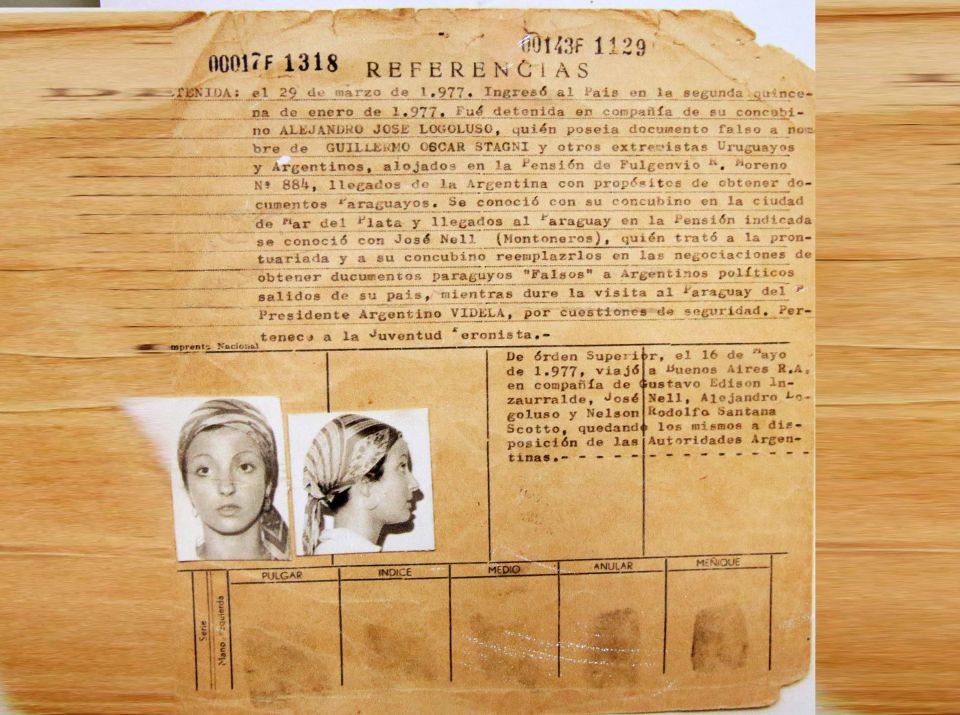 00017F 1318
00143F 1129
REFERENCIAS
TENIDA: el 29 de marzo de 1.977. Ingresó al Pais en la segunda quince-
na de enero de 1.977. Fué detenida en compañía de su concubi-
no ALEJANDRO JOSE LOGOLUSO, quién poseia documento falso a nom
bre de GUILLERMO OSCAR STAGNI y otros extremistas Uruguayos
y Argentinos, alojados en la Pensión de Fulgenvio R. Moreno
Nº 884, llegados de la Argentina con propósitos de obtener do-
cumentos Paraguayos. Se conoció con su concubino en la ciudad
de Mar del Plata y llegados al Paraguay en la Pensión indicada
se conoció con José Nell (Montoneros), quién trató a la pron-
tuariada y a su concubino reemplazrlos en las negociaciones de
obtener ducumentos paraguyos "Falsos" a Argentinos políticos
salidos de su pais, mientras dure la visita al Paraguay del P
Presidente Argentino VIDELA, por cuestiones de seguridad. Per-
tenece a la Juventud Peronista.-
mprenta Nacional
De órden Superior, el 16 de Mayo
de 1.977, viajó a Buenos Aires R.A.
en compañía de Gustavo Edison In-
zaurralde, José Nell, Alejandro Lo-
goluso y Nelson Rodolfo Santana
Scotto, quedando los mismos a dis-
posición de las Autoridades Argen-
tinas.- - - - - - - - - - - - - - -
PULGAR INDICE MEDIO ANULAR MEÑIQUE
Serie
Mano Izquierda